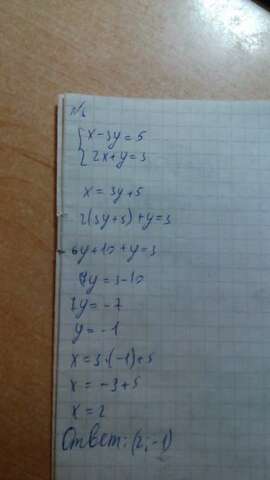 №1
{x-3y=5
2x+y=3
x=3y+5
2(3y+5)+y=3
6y+10+y=3
7y=3-10
7y=-7
y=-1
x=3·(-1)+5
x=-3+5
x=2
Ответ:(2;-1)